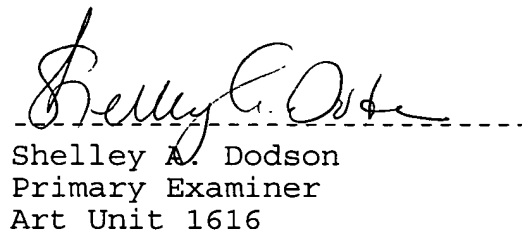 Shelley A. Dodson
Shelley A. Dodson
Primary Examiner
Art Unit 1616